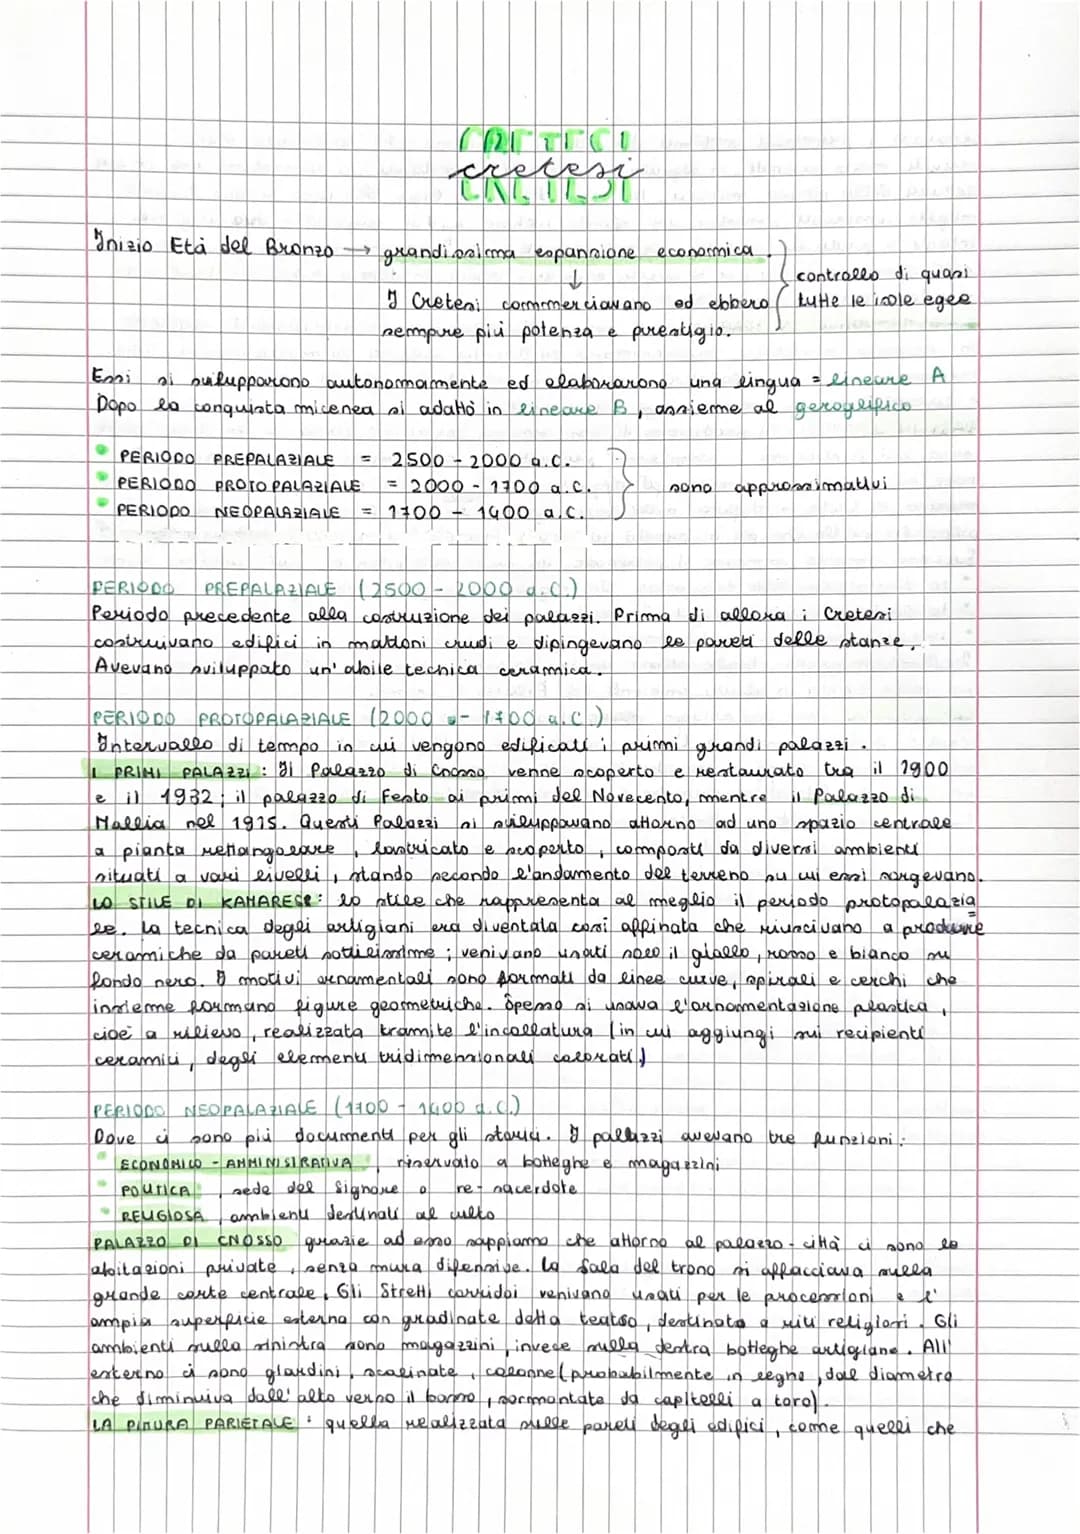 CRETESI
cretesi
Inizio Età del Bronzo → grandissima espansione economica.
↓
controllo di quasi
I Cretesi commerciavano ed ebbero tutte le isole egee
sempre più potenza e prestigio.
Essi si svilupparono autonomamente ed elaborarono una lingua = lineare A
Dopo la conquista micenea si adattò in lineare B, assieme al geroglifico
• PERIODO PREPALAZIALE = 2500 - 2000 a.C.
• PERIODO PROTOPALAZIALE = 2000 - 1700 a.C. sono approssimativi
• PERIODO NEOPALAZIALE = 1700 - 1400 a.C.
PERIODO PREPALAZIALE (2500 - 2000 a.C.)
Periodo precedente alla costruzione dei palazzi. Prima di allora i Cretesi
costruivano edifici in mattoni crudi e dipingevano le pareti delle stanze.
Avevano sviluppato un'abile tecnica ceramica.
PERIODO PROTOPALAZIALE (2000 - 1700 a.C.)
Intervallo di tempo in cui vengono edificati i primi grandi palazzi.
I PRIMI PALAZZI: Il Palazzo di Cnosso venne scoperto e restaurato tra il 1900
e il 1932; il palazzo di Festo ai primi del Novecento, mentre il Palazzo di
Mallia nel 1915. Questi Palazzi si sviluppavano attorno ad uno spazio centrale
a pianta rettangolare, lastricato e scoperto, composti da diversi ambienti
situati a vari livelli, stando secondo l'andamento del terreno su cui essi sorgevano.
LO STILE DI KAMARES: lo stile che rappresenta al meglio il periodo protopalazia
le. La tecnica degli artigiani era diventata così affinata che riuscivano a produrre
ceramiche da pareti sottilissime; venivano usati solo il giallo, rosso e bianco su
fondo nero. I motivi ornamentali sono formati da linee curve, spirali e cerchi che
insieme formano figure geometriche. Spesso si usava l'ornamentazione plastica,
cioè a rilievo, realizzata tramite l'incollatura (in cui aggiungi sui recipienti
ceramici, degli elementi tridimensionali colorati)
PERIODO NEOPALAZIALE (1700 - 1400 a.C.)
Dove ci sono più documenti per gli storici. I palazzi avevano tre funzioni:
• ECONOMICO - AMMINISTRATIVA, riservato a botteghe e magazzini
• POLITICA, sede del Signore o re-sacerdote
• RELIGIOSA, ambienti destinati al culto
PALAZZO DI CNOSSO grazie ad esso sappiamo che attorno al palazzo-città ci sono le
abitazioni private, senza mura difensive. La Sala del trono si affacciava sulla
grande corte centrale. Gli Stretti corridoi venivano usati per le processioni e l'
ampia superficie esterna con gradinate detta teatro, destinato a riti religiosi. Gli
ambienti sulla sinistra sono magazzini, invece sulla destra botteghe artigiane. All'
esterno ci sono giardini, scalinate, colonne (probabilmente in legno, dal diametro
che diminuiva dall'alto verso il basso, sormontate da capitelli a toro).
LA PITTURA PARIETALE: quella realizzata sulle pareti degli edifici, come quelli che